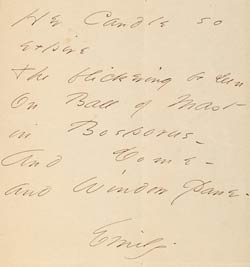 Her Candle so
expire
the flickering be seen
On Ball of Mast
in Bosporus -
And Dome -
and Window Pane -
Emily